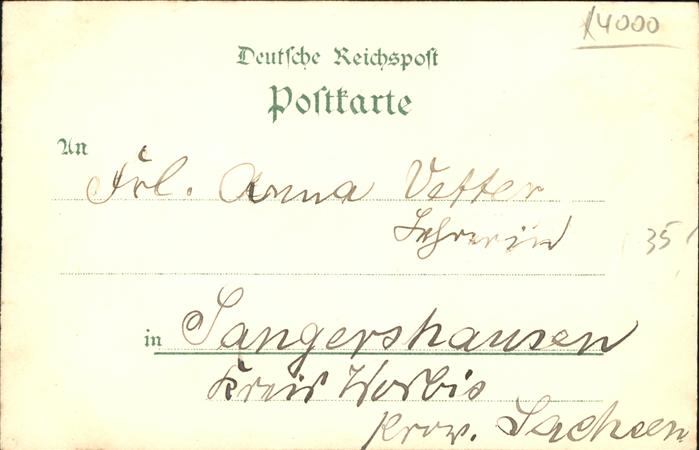 14000
Deutsche Reichspost
Postkarte
An
Frl. Anna Vetter
Lehrerin
35
in Sangershausen
Kreis Worbis
Prov. Sachsen